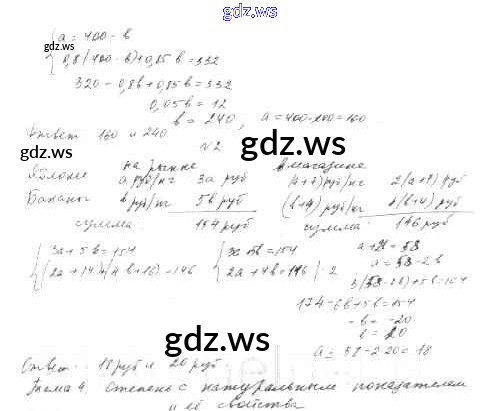 gdz.ws
{ a = 400 - b
0,8(400 - b) + 0,85b = 332
320 - 0,8b + 0,85b = 332
0,05b = 12
b = 240, a = 400-240 = 160
Ответ 160 и 240
№2
gdz.ws gdz.ws
на рынке в магазине
Яблоки a руб/кг 3a руб (a+7) руб/кг 2(a+7) руб
Бананы b руб/кг 5b руб (b+4) руб/кг 4(b+4) руб
сумма 154 руб сумма 146 руб
{ 3a + 5b = 154 { 3a+5b = 154 a + 2b = 58
(2a + 14) + (4b + 16) = 146 2a + 4b = 116 | : 2 a = 58 - 2b
3(58-2b)+5b = 154
174 - 6b + 5b = 154
- b = -20
b = 20
a = 58 - 2·20 = 18
Ответ: 18 руб и 20 руб
gdz.ws gdz.ws
Тема 4. Степень с натуральным показателем
и её свойства